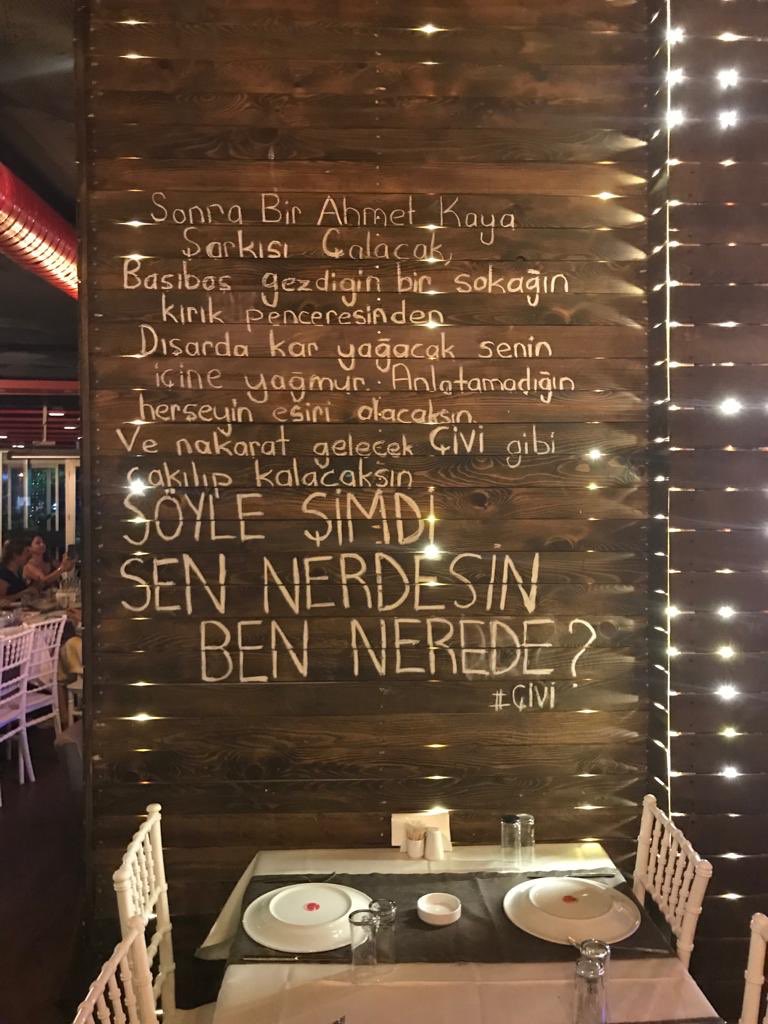 Sonra Bir Ahmet Kaya
Şarkısı Çalacak,
Başıboş gezdiğin bir sokağın
kırık penceresinden
Dışarda kar yağacak senin
içine yağmur. Anlatamadığın
herşeyin esiri olacaksın
Ve nakarat gelecek ÇİVİ gibi
çakılıp kalacaksın
SÖYLE ŞİMDİ
SEN NERDESİN
BEN NEREDE?
#ÇİVİ